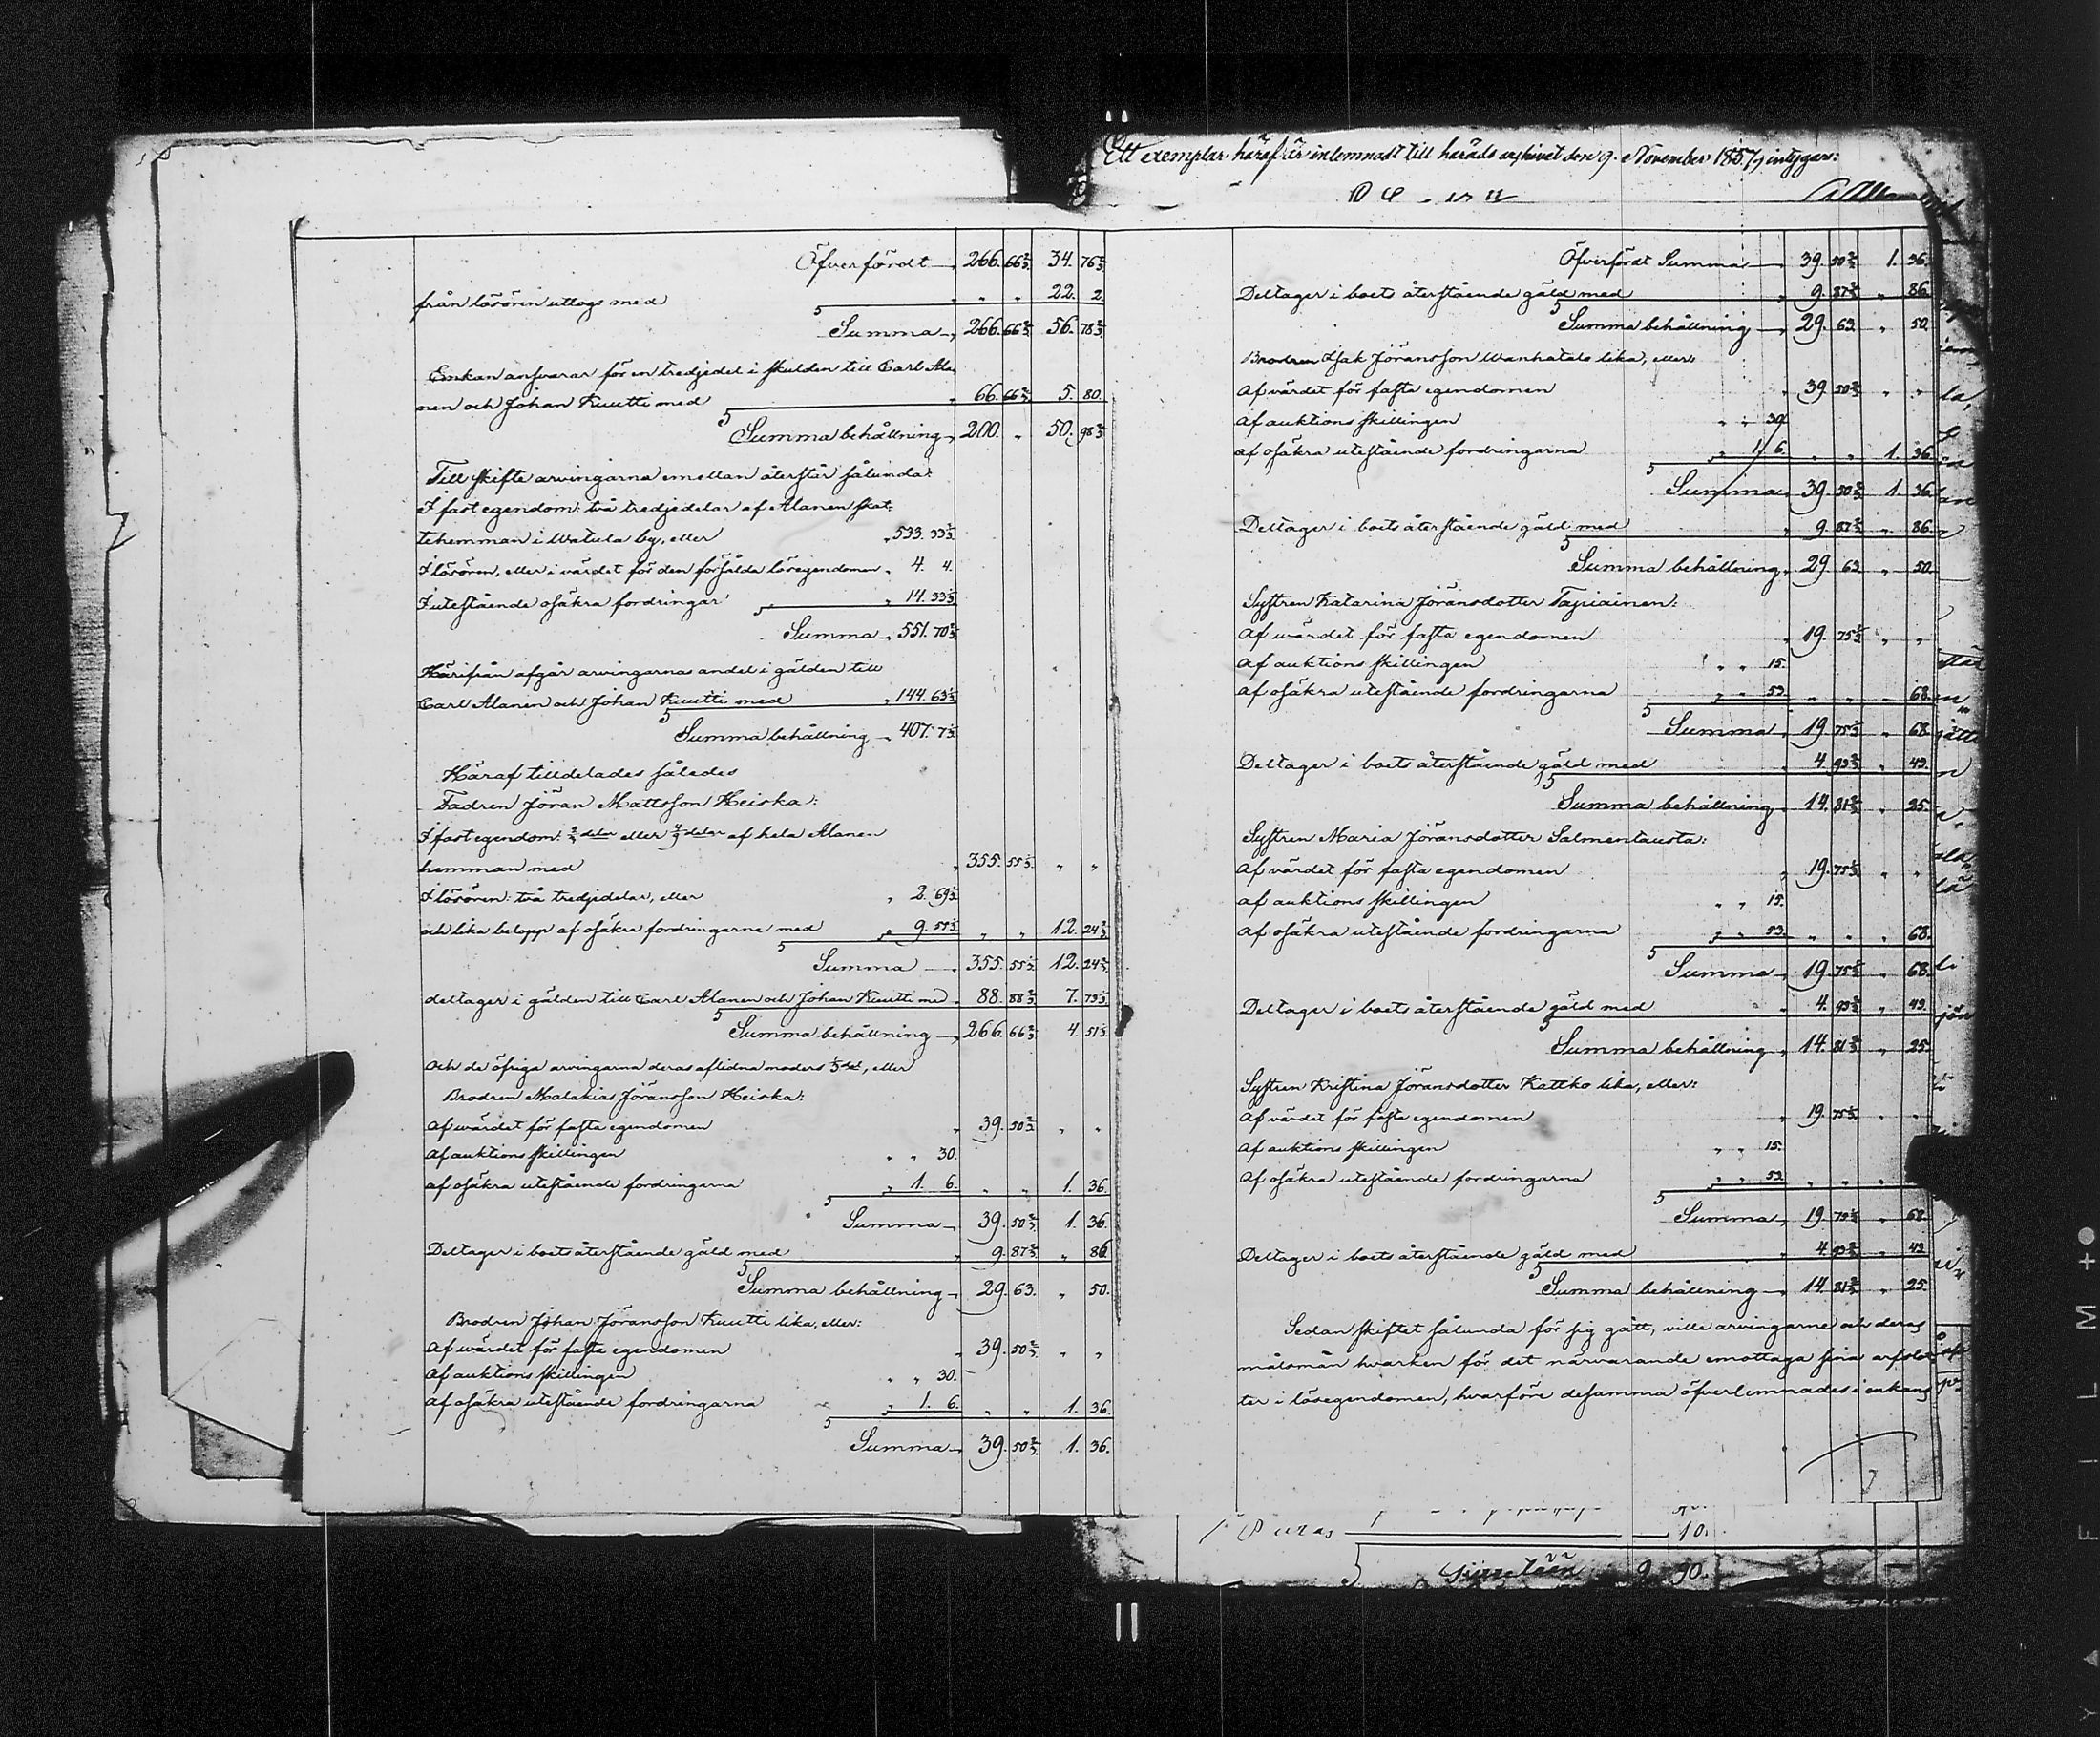 Öfverfördt 266. 66 2/3. 34. 76 2/3.
från lösören uttogs med " " 22. 2.
Summa 266. 66 2/3. 56. 78 2/3.
Enkan ansvarar för en tredjedel i skulden till Carl Ala-
nen och Johan Kuutti med 66. 66 2/3. 5. 80.
Summa behållning 200. " 50. 98 2/3.
Till skifte arvingarna emellan återstår sålunda:
I fast egendom: två tredjedelar af Alanen skat-
tehemman i Watula by, eller 533. 33 1/3.
I lösören, eller i värdet för den försålda lösegendomen 4. 4.
I utestående osäkra fordringar 14. 33 1/3.
Summa 551. 70 2/3.
Härifrån afgår arvingarnas andel i gälden till
Carl Alanen och Johan Kuutti med 144. 63 1/3.
Summa behållning 407. 7 1/3.
Häraf tilldelades således
Fadren Jöran Mattsson Heiska:
I fast egendom: 2/3 delar eller 4/9 delar af hela Alanen
hemman med 355. 55 1/3. " "
I lösören: två tredjedelar, eller 2. 69 1/3.
och lika belopp af osäkra fordringarne med 9. 55 1/3. " " 12. 24 2/3.
Summa 355. 55 1/3. 12. 24 2/3.
deltager i gälden till Carl Alanen och Johan Kuutti med 88. 88 2/3. 7. 73 1/3.
Summa behållning 266. 66 2/3. 4. 51 1/3.
Och de öfriga arvingarna deras aflidna moders 1/3 del, eller
Brodren Malakias Jöransson Heiska:
Af wärdet för fasta egendomen 39. 50 2/3. " "
Af auktions skillingen " " 30.
af osäkra utestående fordringarna " 1. 6. " " 1. 36.
Summa 39. 50 2/3. 1. 36.
Deltager i boets återstående gäld med 9. 87 2/3. " 86.
Summa behållning 29. 63. " 50.
Brodren Johan Jöransson Kuutti lika, eller:
Af wärdet för fasta egendomen 39. 50 2/3. " "
Af auktions skillingen " " 30.
Af osäkra utestående fordringarna " 1. 6. " " 1. 36.
Summa 39. 50 2/3. 1. 36.
Ett exemplar häraf är inlemnadt till härads arkivet den 9. November 1857, intygar:
Öfverfördt Summa 39. 50 2/3. 1. 36.
Deltager i boets återstående gäld med 9. 87 2/3. " 86.
Summa behållning 29. 63. " 50.
Brodren Isak Jöransson Wanhatalo lika, eller:
Af värdet för fasta egendomen 39. 50 2/3. " "
Af auktions skillingen " " 30.
af osäkra utestående fordringarna " 1. 6. " " 1. 36.
Summa 39. 50 2/3. 1. 36.
Deltager i boets återstående gäld med 9. 87 2/3. " 86.
Summa behållning 29. 63. " 50.
Systren Katarina Jöransdotter Tapiainen:
Af wärdet för fasta egendomen 19. 75 1/3. " "
Af auktions skillingen " " 15.
af osäkra utestående fordringarna " " 53. " " " 68.
Summa 19. 75 1/3. " 68.
Deltager i boets återstående gäld med 4. 93 2/3. " 43.
Summa behållning 14. 81 2/3. " 25.
Systren Maria Jöransdotter Salmentausta:
Af värdet för fasta egendomen 19. 75 1/3. " "
af auktions skillingen " " 15.
Af osäkra utestående fordringarna " " 53. " " " 68.
Summa 19. 75 1/3. " 68.
Deltager i boets återstående gäld med 4. 93 2/3. " 43.
Summa behållning 14. 81 2/3. " 25.
Systren Kristina Jöransdotter Kattko lika, eller:
Af värdet för fasta egendomen 19. 75 1/3. " "
Af auktions skillingen " " 15.
Af osäkra utestående fordringarna " " 53. " " "
Summa 19. 75 1/3. " 68.
Deltager i boets återstående gäld med 4. 93 2/3. " 43.
Summa behållning 14. 81 2/3. " 25.
Sedan skiftet sålunda för sig gått, ville arvingarne och deras
målsmän hvarken för det närvarande emottaga sina arfslot-
ter i lösegendomen, hvarföre desamma öfverlemnades i enkans
10.
9 90.
FILM